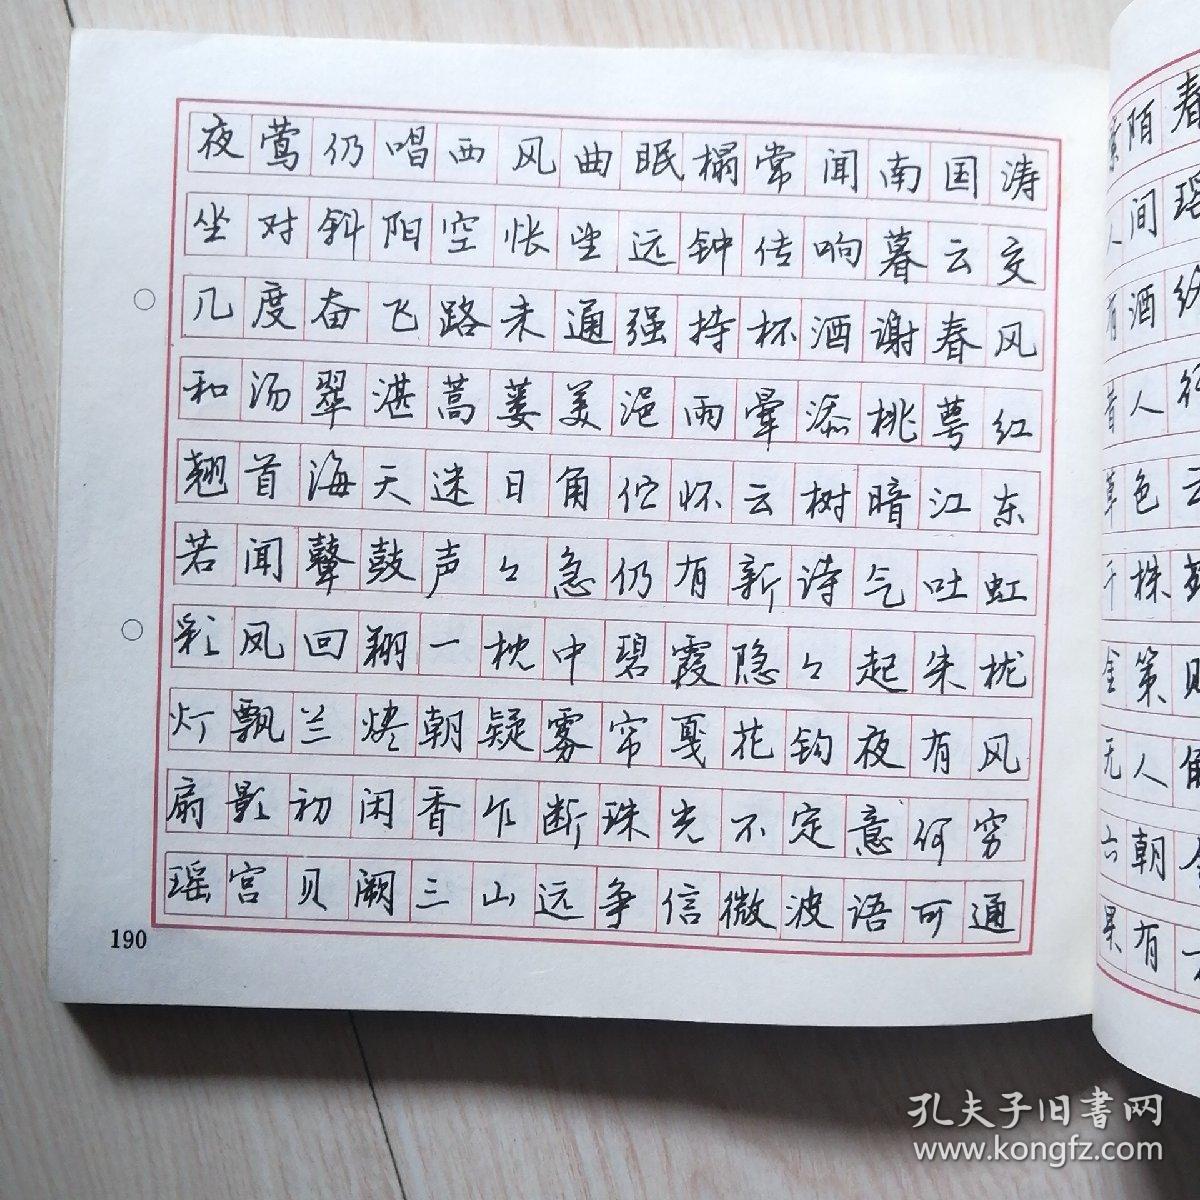 夜莺仍唱西风曲眠榻常闻南国涛
坐对斜阳空怅望远钟传响暮云交
几度奋飞路未通强持杯酒谢春风
和汤翠湛蒿蒌美浥雨晕添桃萼红
翘首海天迷日角伫怀云树暗江东
若闻鼙鼓声々急仍有新诗气吐虹
彩凤回翔一枕中碧霞隐々起朱栊
灯飘兰烬朝疑雾帘戛花钩夜有风
扇影初闲香乍断珠光不定意何穷
瑶宫贝阙三山远争信微波语可通
190
陌春
人间瑶
有酒
昔人
草色云
千株
金策
无人
六朝
果有
孔夫子旧书网
www.kongfz.com